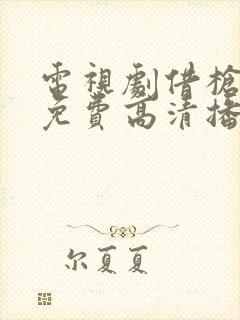 電視劇借槍
免費高清播
尔夏夏